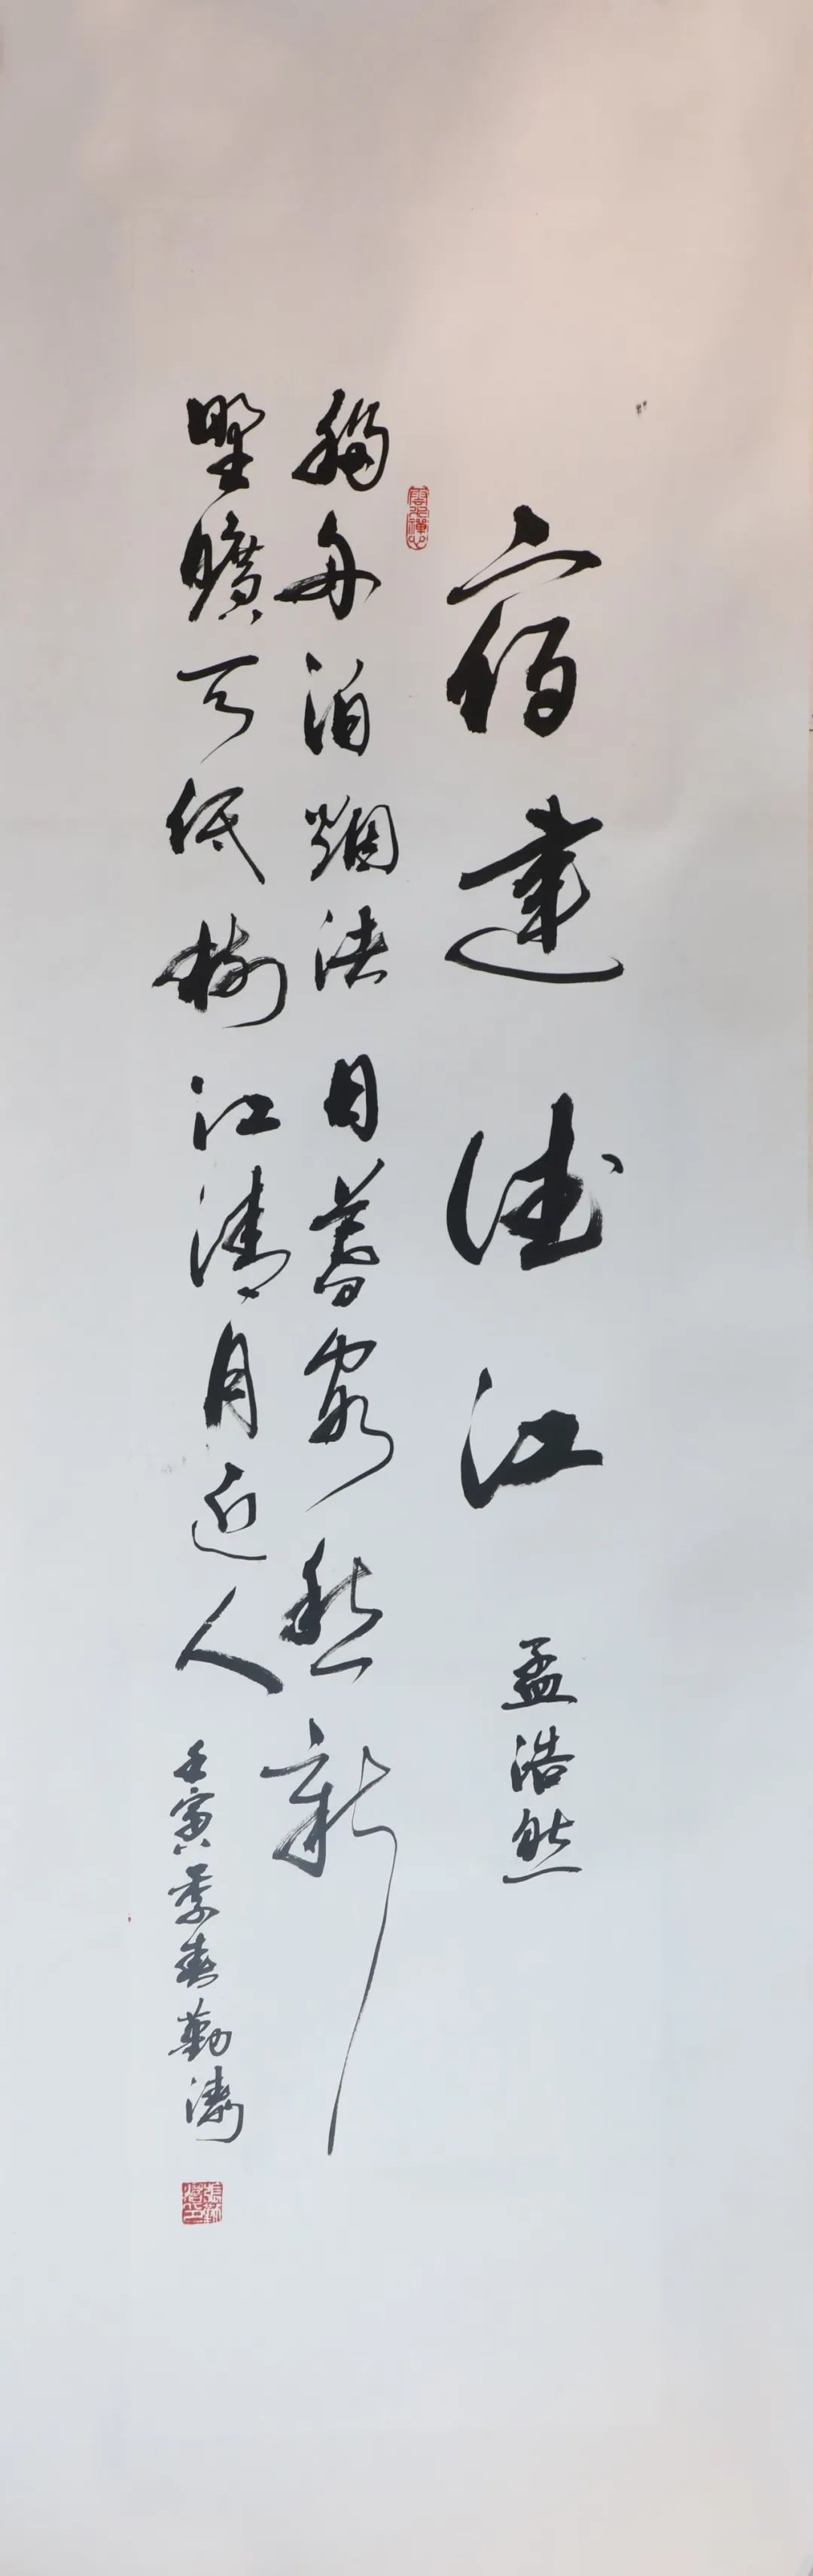 宿建德江 孟浩然
雲水禪心
移舟泊烟渚日暮客愁新
野曠天低樹江清月近人 壬寅季春勤濤